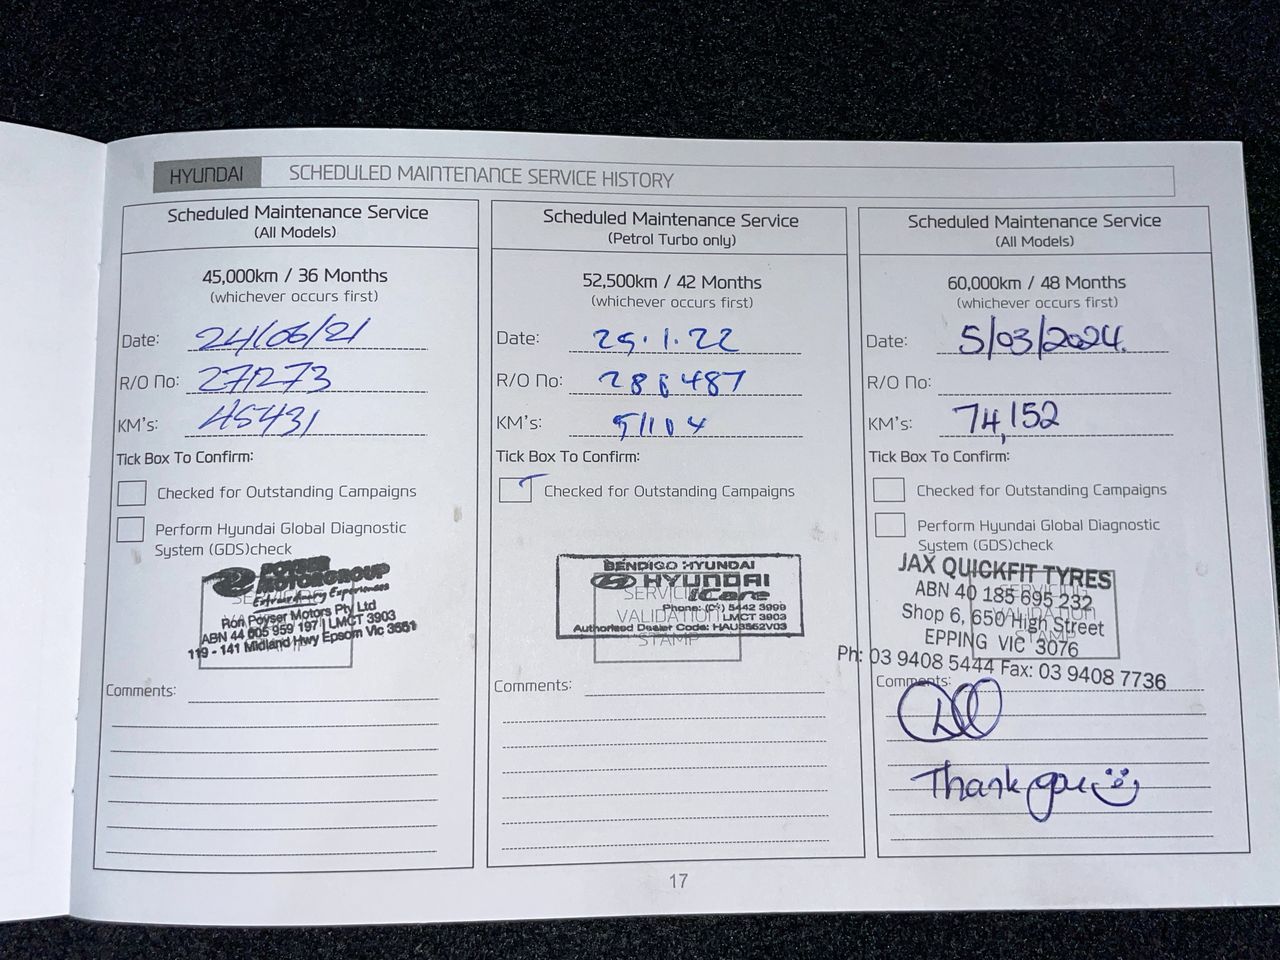 HYUNDAI SCHEDULED MAINTENANCE SERVICE HISTORY
Scheduled Maintenance Service
(All Models)
45,000km / 36 Months
(whichever occurs first)
Date: 24/06/21
R/O No: 271273
KM's: 45431
Tick Box To Confirm:
Checked for Outstanding Campaigns
Perform Hyundai Global Diagnostic
System (GDS)check
POYSER
MOTORGROUP
Extraordinary Experiences
Ron Poyser Motors Pty Ltd
ABN 44 005 959 197 | LMCT 3903
119 - 141 Midland Hwy Epsom Vic 3551
Comments:
Scheduled Maintenance Service
(Petrol Turbo only)
52,500km / 42 Months
(whichever occurs first)
Date: 29.1.22
R/O No: 286487
KM's: 51104
Tick Box To Confirm:
Checked for Outstanding Campaigns
BENDIGO HYUNDAI
HYUNDAI
iCare
SERVICE
Phone: (03) 5442 3999
VALIDATION LMCT 3903
Authorised Dealer Code: HAU3562V03
STAMP
Comments:
Scheduled Maintenance Service
(All Models)
60,000km / 48 Months
(whichever occurs first)
Date: 5/03/2024.
R/O No:
KM's: 74,152
Tick Box To Confirm:
Checked for Outstanding Campaigns
Perform Hyundai Global Diagnostic
System (GDS)check
JAX QUICKFIT TYRES
ABN 40 185 695 232
Shop 6, 650 High Street
EPPING VIC 3076
Ph: 03 9408 5444 Fax: 03 9408 7736
Comments:
Thank you
17